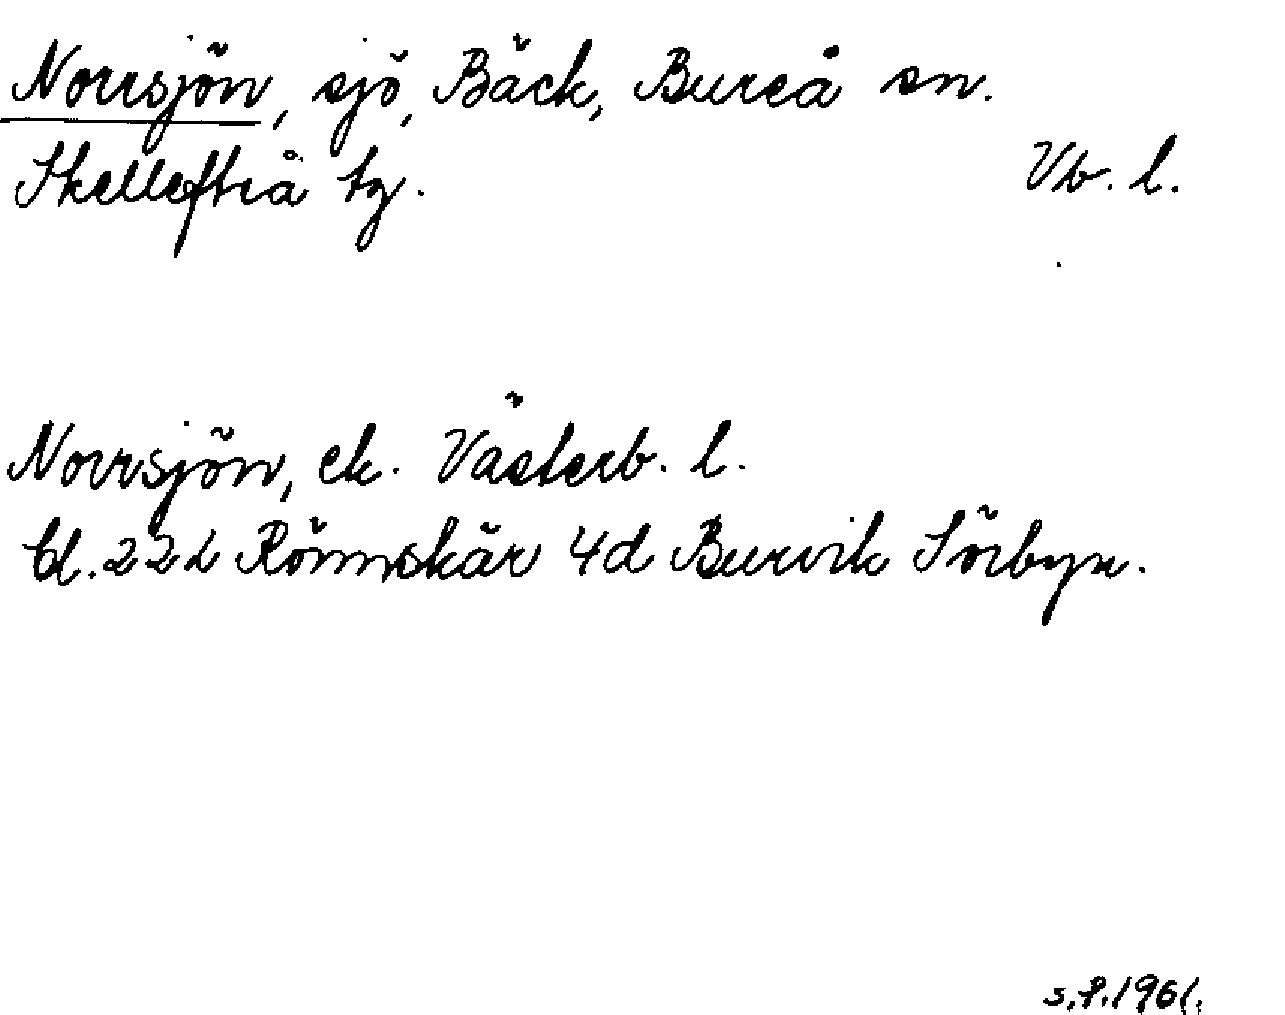 Norrsjön, sjö, Bäck, Bureå sn.
Skellefteå tg. Vb. l.
Norrsjön, ek. Västerb. l.
bl. 22L Rönnskär 4d Burvik Sörbyn.
s.f. 1961.